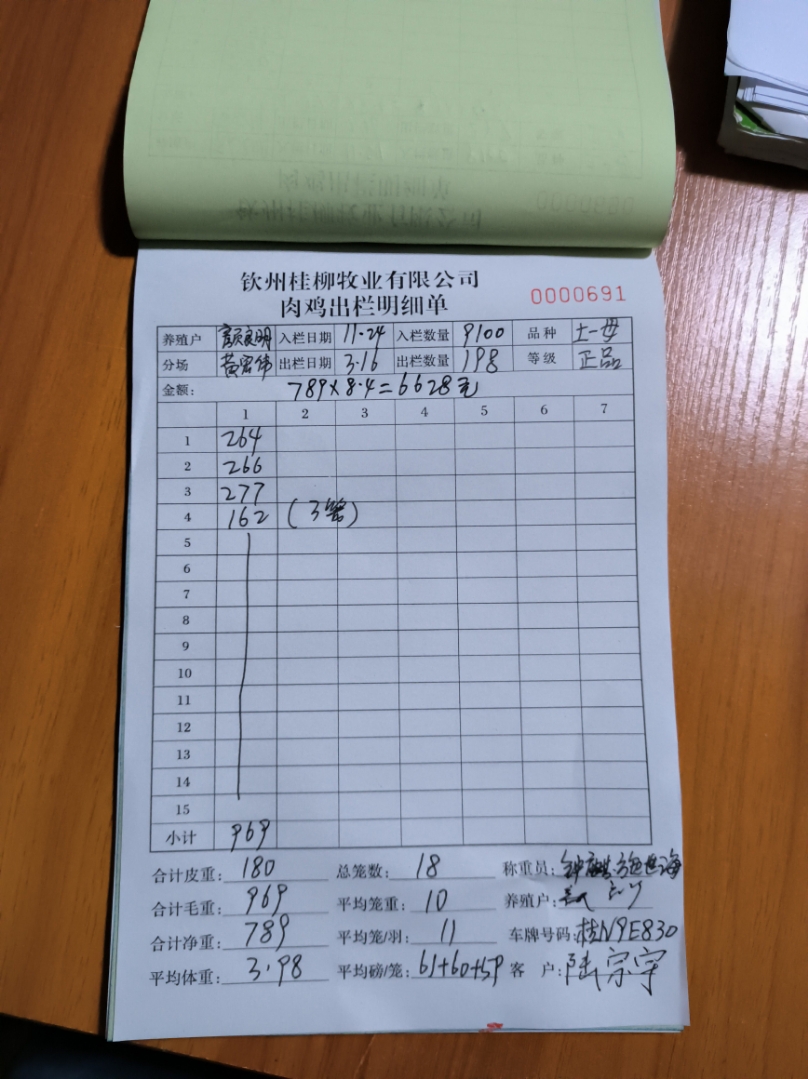 钦州桂柳牧业有限公司
肉鸡出栏明细单 0000691
养殖户 颜良明 入栏日期 11·24 入栏数量 9100 品种 土一母
分场 黄宏伟 出栏日期 3·16 出栏数量 198 等级 正品
金额: 789×8·4=6628元
1 2 3 4 5 6 7
1 264
2 266
3 277
4 162 (3笼)
5
6
7
8
9
10
11
12
13
14
15
小计 969
合计皮重: 180 总笼数: 18 称重员:
合计毛重: 969 平均笼重: 10 养殖户:
合计净重: 789 平均笼/羽: 11 车牌号码: 桂N9E830
平均体重: 3·98 平均磅/笼: 61+60+59 客 户: 陆宗宇